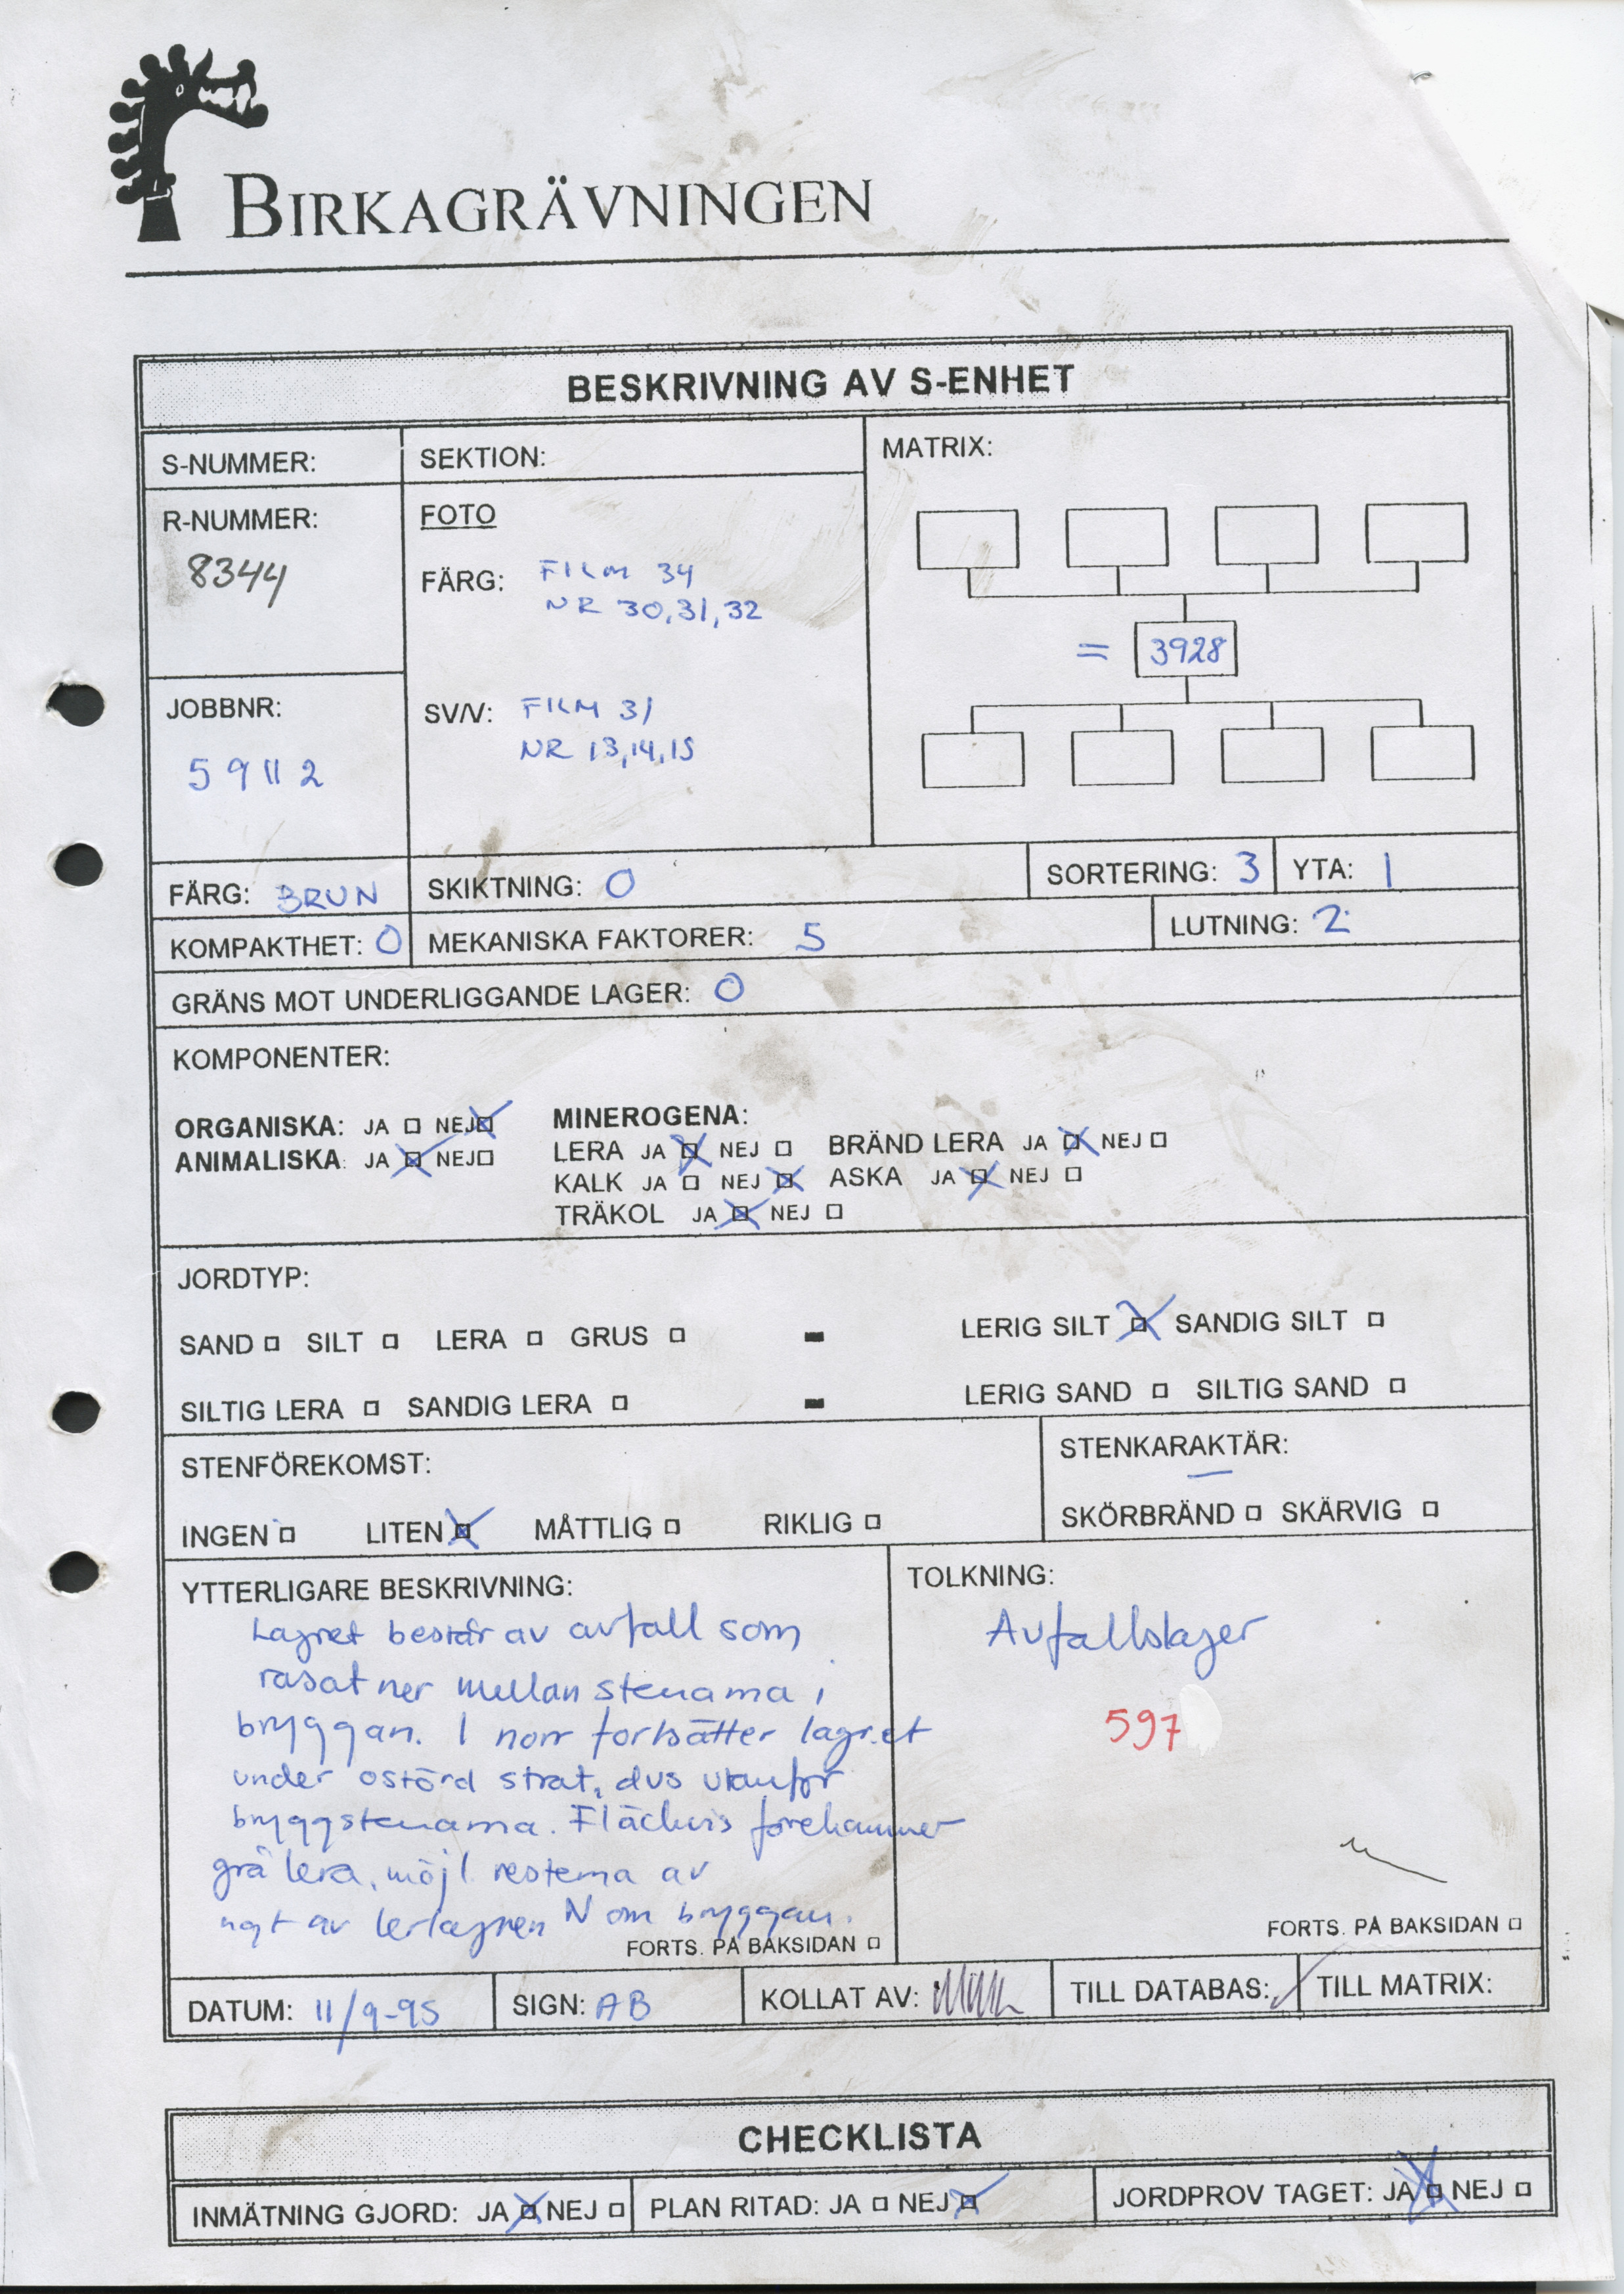 BIRKAGRÄVNINGEN
BESKRIVNING AV S-ENHET
S-NUMMER:
SEKTION:
MATRIX:
R-NUMMER:
8344
FOTO
FÄRG: FILM 34
NR 30,31,32
= 3928
JOBBNR:
59112
SV/V: FILM 31
NR 13,14,15
FÄRG: BRUN
SKIKTNING: 0
SORTERING: 3
YTA: 1
KOMPAKTHET: 0
MEKANISKA FAKTORER: 5
LUTNING: 2
GRÄNS MOT UNDERLIGGANDE LAGER: 0
KOMPONENTER:
ORGANISKA: JA NEJ
ANIMALISKA: JA NEJ
MINEROGENA:
LERA JA NEJ BRÄND LERA JA NEJ
KALK JA NEJ ASKA JA NEJ
TRÄKOL JA NEJ
JORDTYP:
SAND SILT LERA GRUS - LERIG SILT SANDIG SILT
SILTIG LERA SANDIG LERA - LERIG SAND SILTIG SAND
STENFÖREKOMST:
INGEN LITEN MÅTTLIG RIKLIG
STENKARAKTÄR:
—
SKÖRBRÄND SKÄRVIG
YTTERLIGARE BESKRIVNING:
Lagret består av avfall som
rasat ner mellan stenarna i
bryggan. I norr fortsätter lagret
under ostörd strat, dvs utanför
bryggstenarna. Fläckvis förekommer
grå lera, möjl. resterna av
ngt av lerlagren N om bryggan.
FORTS. PÅ BAKSIDAN
TOLKNING:
Avfallslager
597
FORTS. PÅ BAKSIDAN
DATUM: 11/9-95
SIGN: AB
KOLLAT AV:
TILL DATABAS: ✓
TILL MATRIX:
CHECKLISTA
INMÄTNING GJORD: JA NEJ
PLAN RITAD: JA NEJ
JORDPROV TAGET: JA NEJ